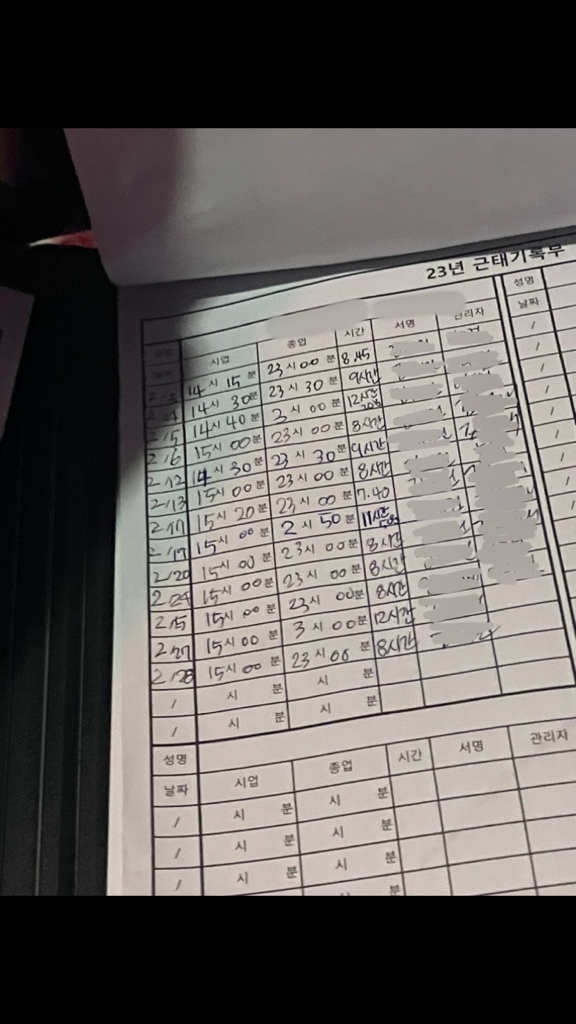 23년 근태기록부
성명
시업 종업 시간 서명 리자 날짜
14시 15분 23시 00분 8.45 /
2/4 14시 30분 23시 30분 9시간 /
2/5 14시 40분 3시 00분 12시간 /
2/6 15시 00분 23시 00분 8시간 /
2/12 14시 30분 23시 30분 9시간 /
2/13 15시 00분 23시 00분 8시간 /
2/17 15시 20분 23시 00분 7.40 /
2/19 15시 00분 2시 50분 11시간 /
2/20 15시 00분 23시 00분 8시간
2/24 15시 00분 23시 00분 8시간
2/5 15시 00분 23시 00분 8시간
2/27 15시 00분 3시 00분 12시간
2/28 15시 00분 23시 00분 8시간
/ 시 분 시 분
/ 시 분 시 분
성명
날짜 시업 종업 시간 서명 관리자
/ 시 분 시 분
/ 시 분 시 분
/ 시 분 시 분
분